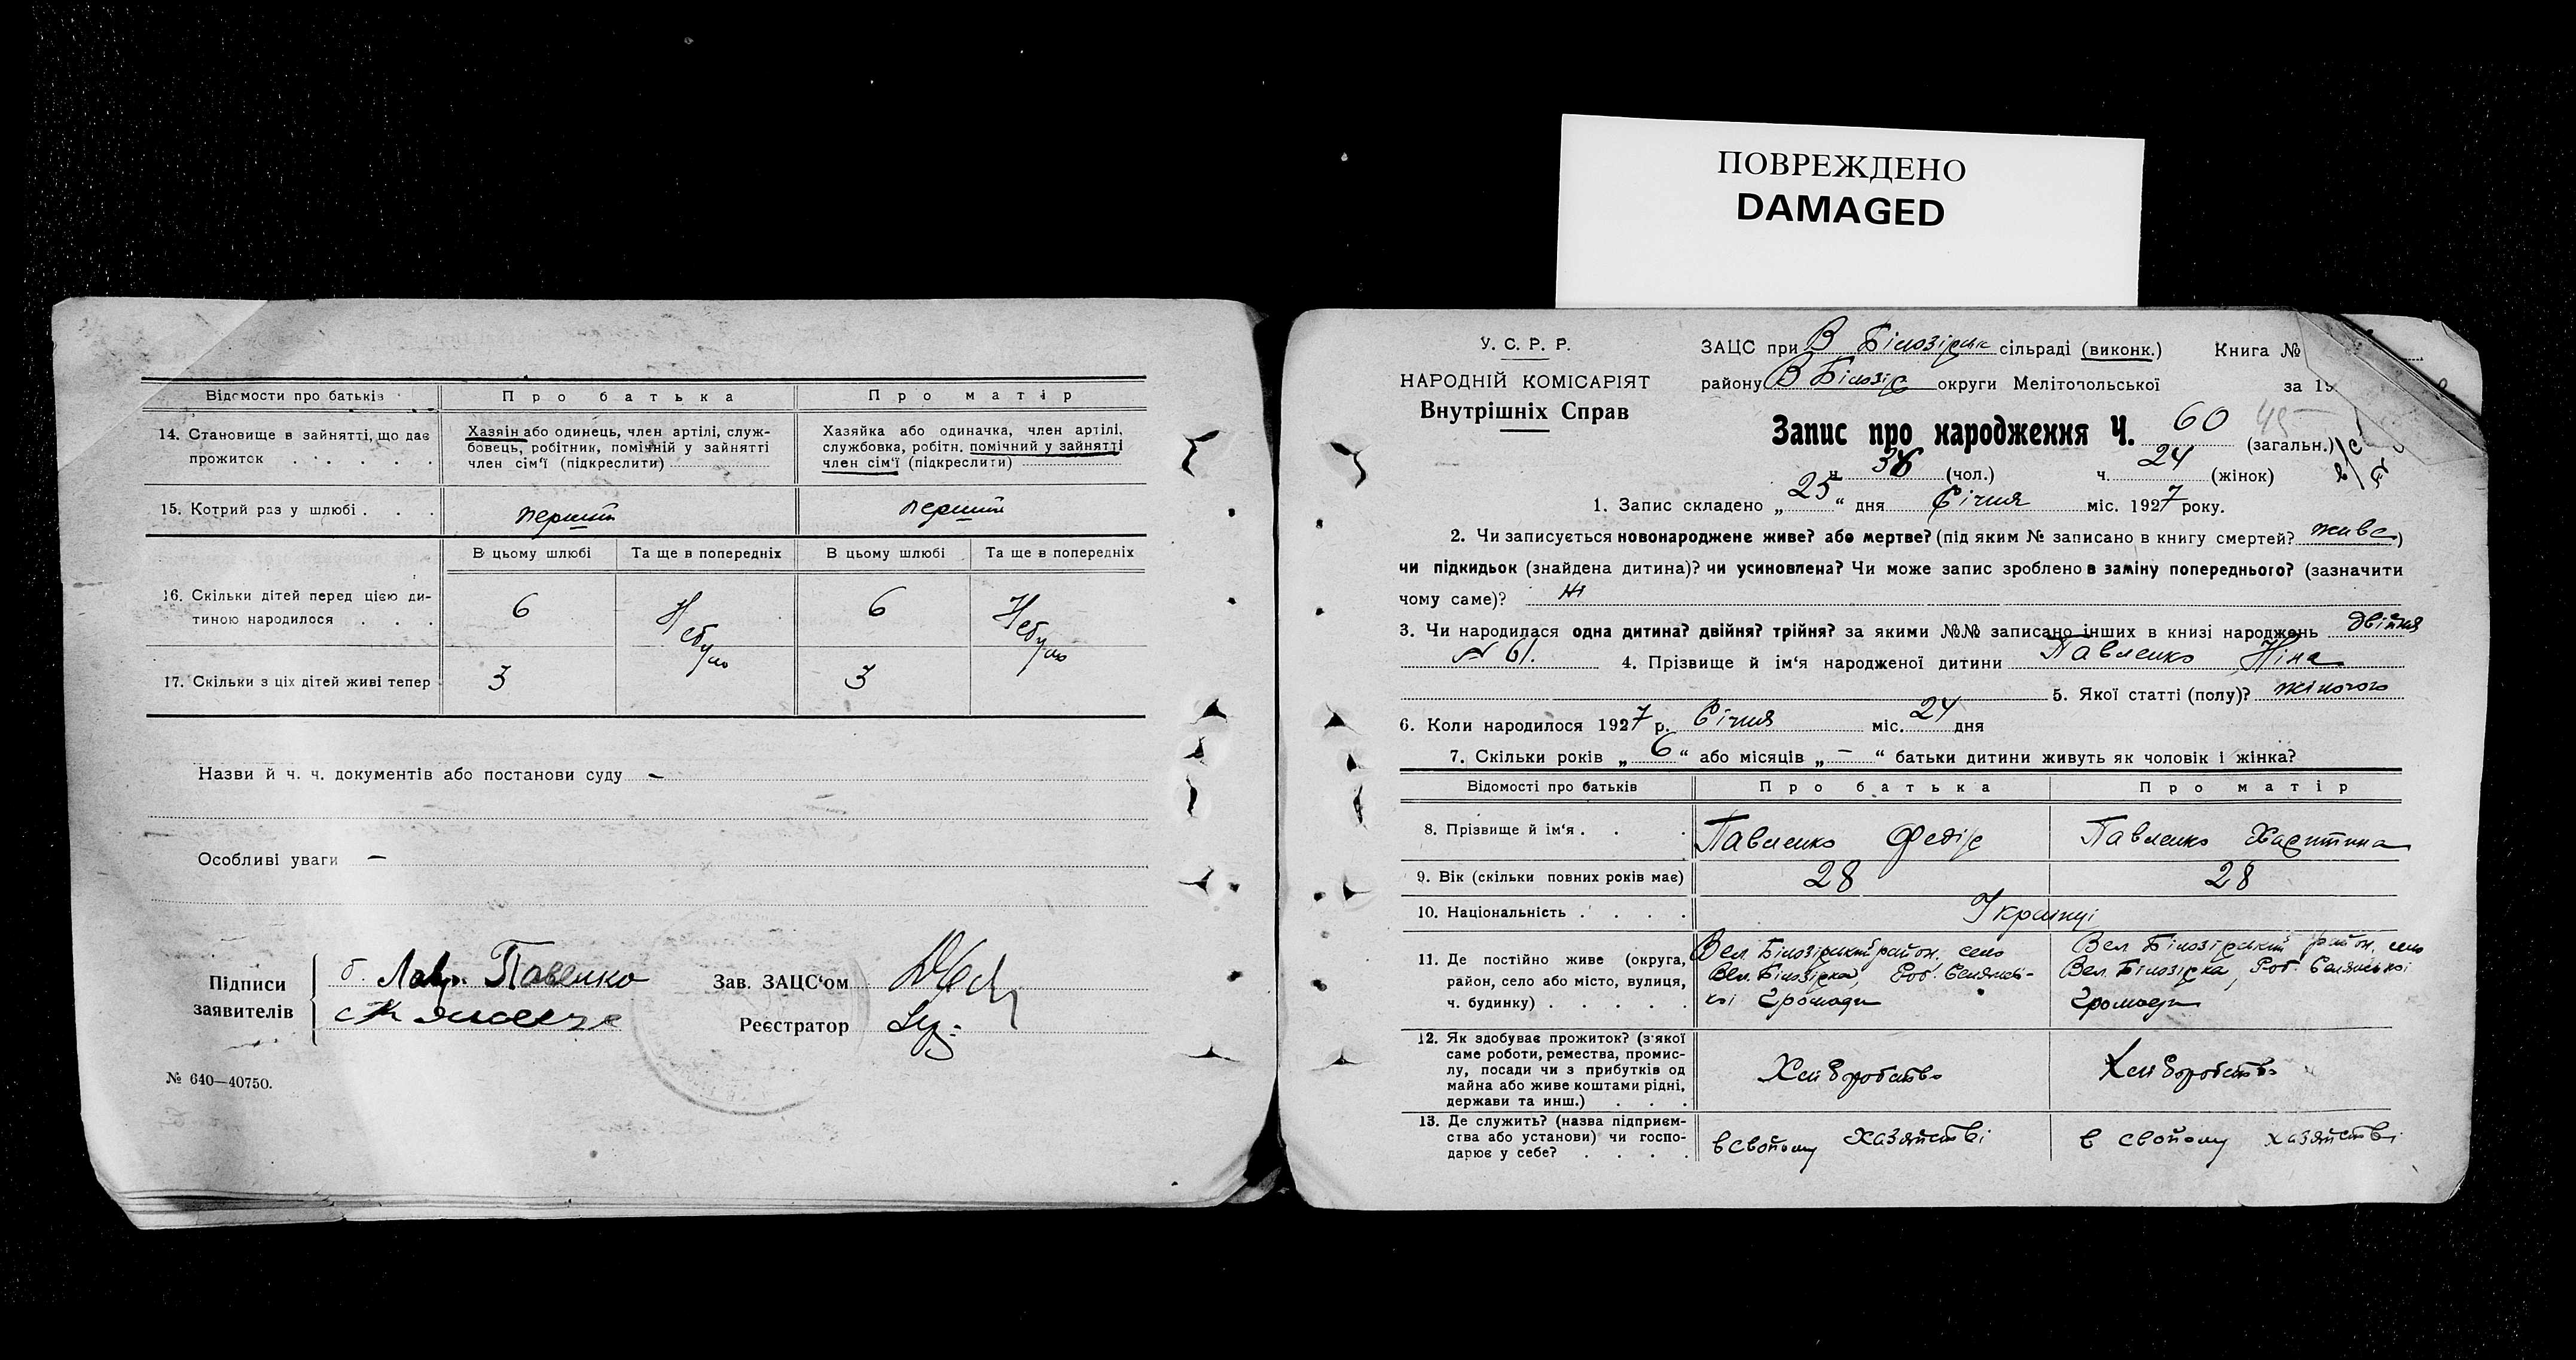 ПОВРЕЖДЕНО
DAMAGED
Відомости про батьків
Про батька
Про матір
14. Становище в зайнятті, що дає
прожиток
Хазяін або одинець, член артілі, служ-
бовець, робітник, помічній у зайнятті
член сім'ї (підкреслити)
Хазяйка або одиначка, член артілі,
службовка, робітн. помічний у зайнятті
член сім'ї (підкреслити)
15. Котрий раз у шлюбі
перший
перший
В цьому шлюбі
Та ще в попередніх
В цьому шлюбі
Та ще в попередніх
16. Скільки дітей перед цією ди-
тиною народилося
6
Не було
6
Не було
17. Скільки з ціх дітей живі тепер
3
3
Назви й ч. ч. документів або постанови суду —
Особливі уваги —
Підписи
заявителів
Зав. ЗАЦС'ом
Реєстратор
№ 640—40750.
У. С. Р. Р.
НАРОДНІЙ КОМІСАРІЯТ
Внутрішніх Справ
ЗАЦС при В Білозірськ сільраді (виконк.) Книга №
району В Білозір округи Мелітопольської за 19
Запис про народження Ч. 60 (загальн.)
ч. 36 (чол.) ч. 24 (жінок)
1. Запис складено „25“ дня Січня міс. 1927 року.
2. Чи записується новонароджене живе? або мертве? (під яким № записано в книгу смертей? живе)
чи підкидьок (знайдена дитина)? чи усиновлена? Чи може запис зроблено в заміну попереднього? (зазначити
чому саме)? Ні
3. Чи народилася одна дитина? двійня? трійня? за якими №№ записано інших в книзі народжень двійня
№ 61. 4. Прізвище й ім'я народженої дитини Павленко Ніна
5. Якої статті (полу)? жіночого
6. Коли народилося 1927 р. Січня міс. 24 дня
7. Скільки років „6“ або місяців „—“ батьки дитини живуть як чоловік і жінка?
Відомості про батьків
Про батька
Про матір
8. Прізвище й ім'я
Павленко Федір
Павленко Харитина
9. Вік (скільки повних років має)
28
28
10. Національність
Українці
11. Де постійно живе (округа,
район, село або місто, вулиця,
ч. будинку)
Вел. Білозірський район, село
Вел. Білозірка, Роб. Селянсь-
кої Громади
Вел Білозірський район, село
Вел. Білозірка, Роб. Селянської
Громади
12. Як здобуває прожиток? (з'якої
саме роботи, ремества, промис-
лу, посади чи з прибутків од
майна або живе коштами рідні,
держави та инш.)
Хліборобство
Хліборобство
13. Де служить? (назва підприєм-
ства або установи) чи госпо-
дарює у себе?
в свойому хазяйстві
в свойому хазяйстві